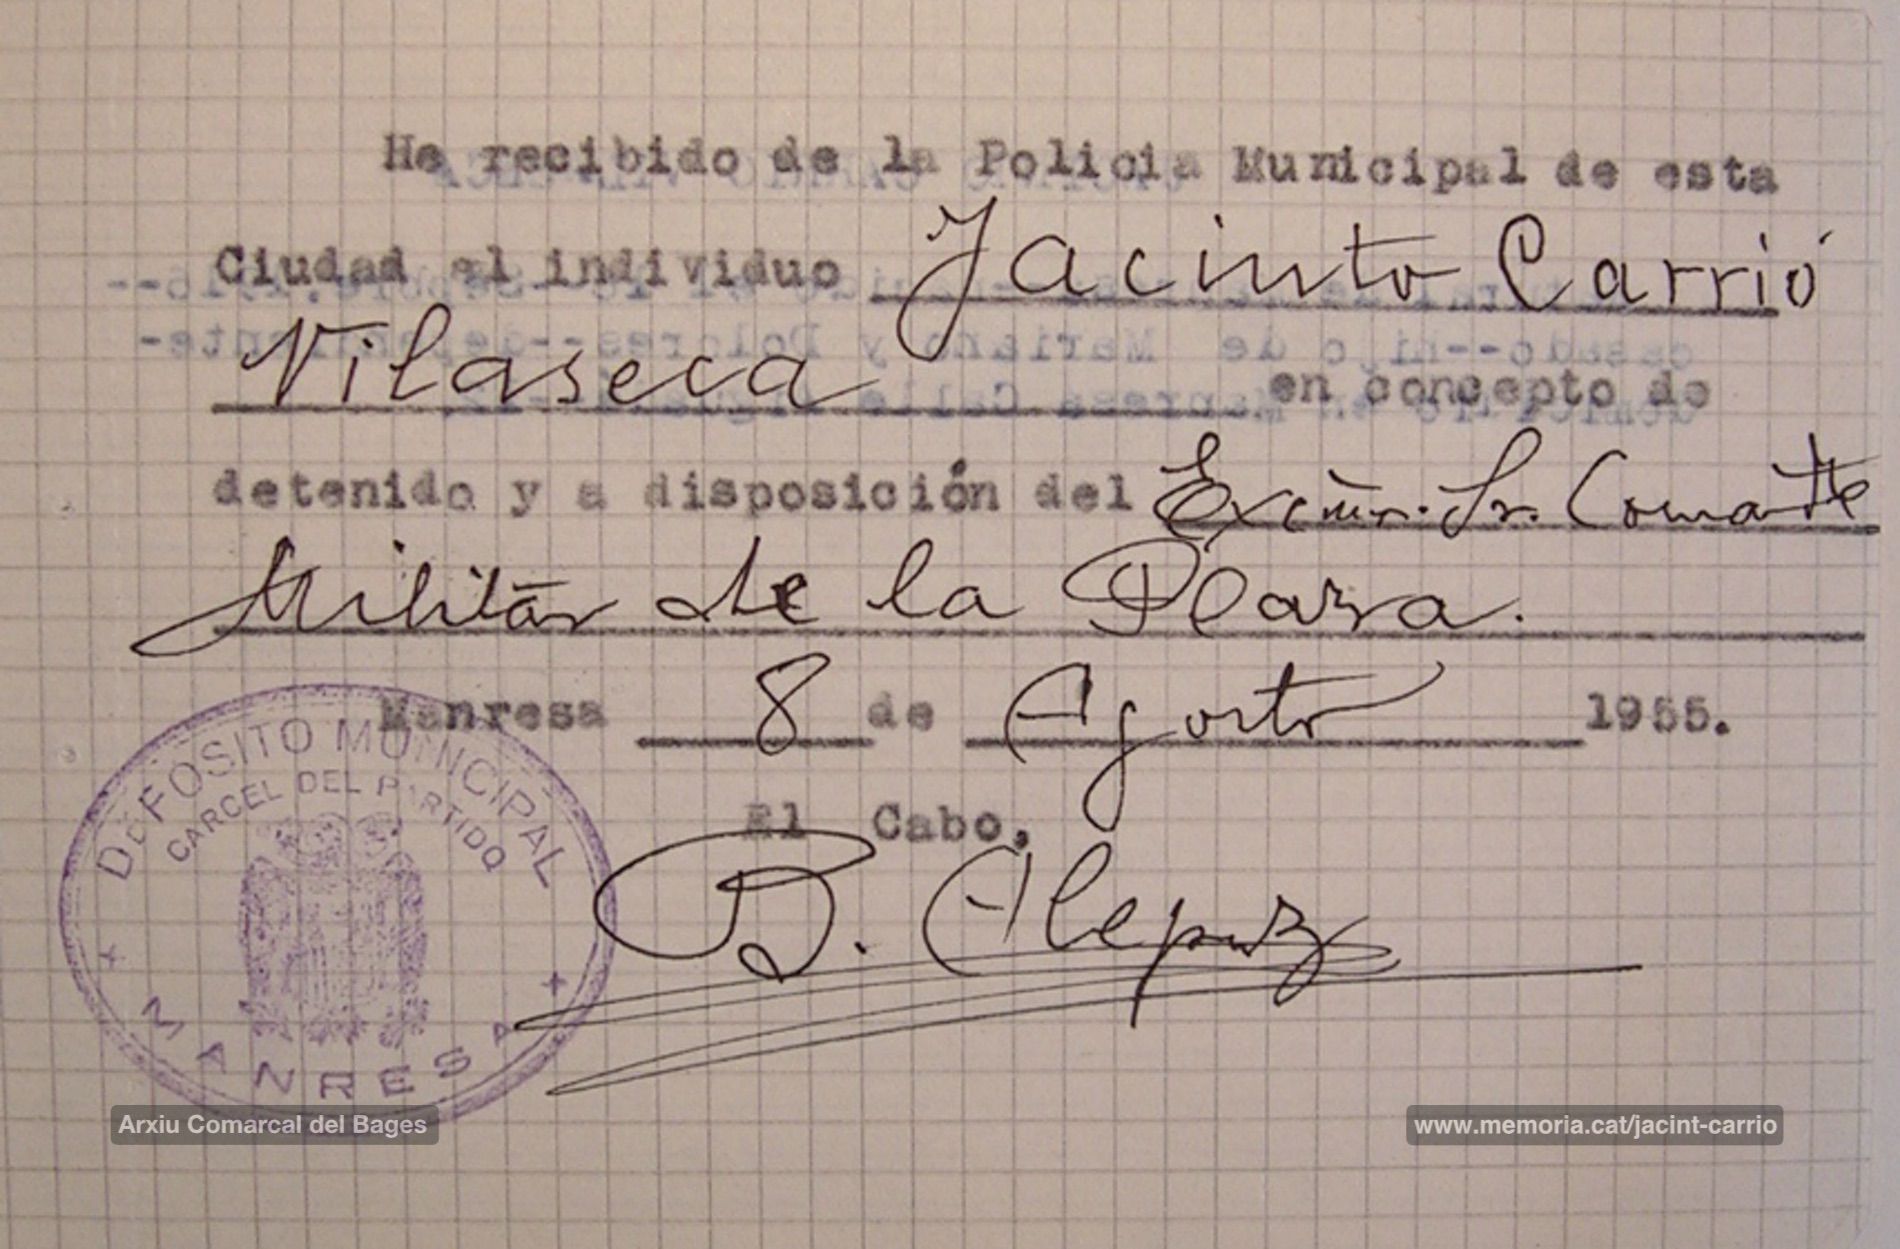 He recibido de la Policia Municipal de esta
Ciudad al individuo Jacinto Carrió
Vilaseca en concepto de
detenido y a disposición del Excmo. Sr. Comandte
Militar de la Plaza.
Manresa 8 de Agosto 1955.
El Cabo,
B. Alepuz
DEPOSITO MUNICIPAL
CARCEL DEL PARTIDO
MANRESA
Arxiu Comarcal del Bages
www.memoria.cat/jacint-carrio